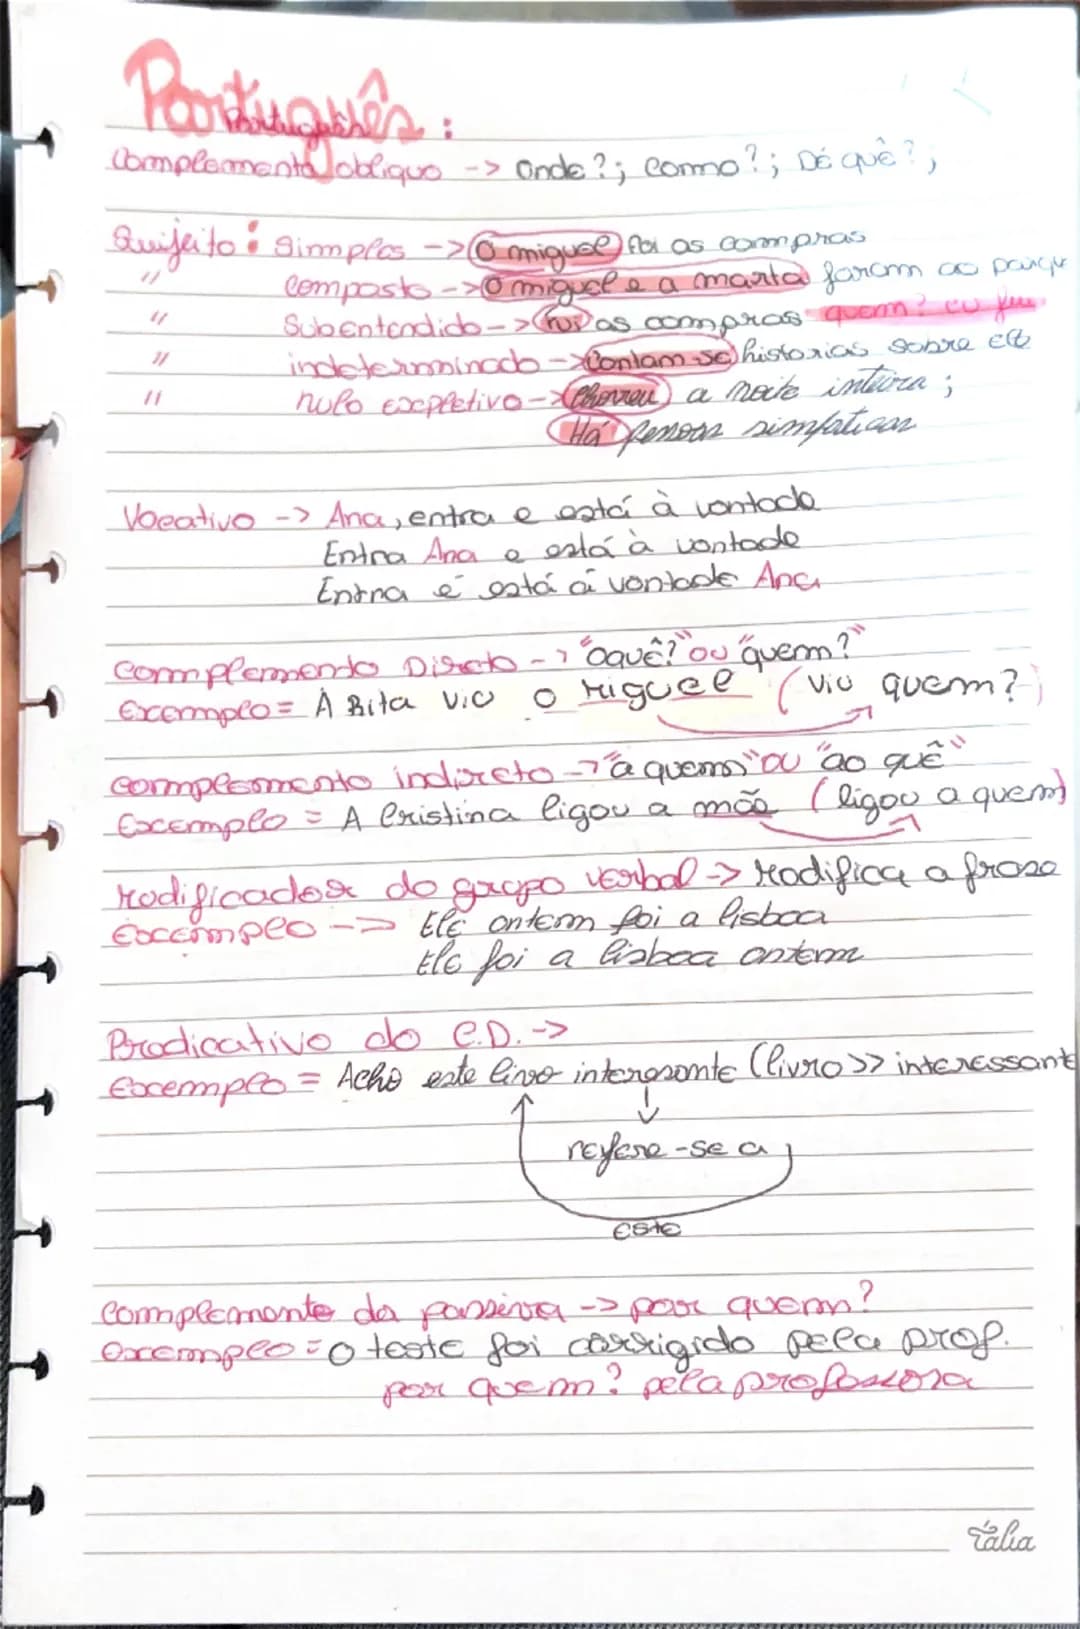 Português :
Complemento obliquo -> Onde?; Como?; De quê?;
Sujeito : Simples -> O miguel foi as compras
" composto -> O miguel e a marta foram ao parque
" SubEntendido -> Fui as compras quem? eu fui
" indeterminado -> Contam-se historias sobre ele
" nulo expletivo -> Choveu a noite inteira ;
Há pessoas simpaticas
Vocativo -> Ana, entra e está à vontade
Entra Ana e está à vontade
Entra e está á vontade Ana
Complemento Direto -> "oquê?" ou "quem?"
Exemplo = A Rita viu o Miguel (viu quem?)
complemento indireto -> "a quem" ou "ao quê"
Exemplo = A Cristina ligou a mãe (ligou a quem)
Modificador do grupo verbal -> Modifica a frase
Exemplo -> Ele ontem foi a lisboa
Ele foi a lisboa ontem
Predicativo do C.D. ->
Exemplo = Acho este livro interesante (livro >> interessante
refere-se a
este
Complemento da passiva -> por quem?
exemplo = O teste foi corrigido pela prof.
por quem? pela professora
Tália